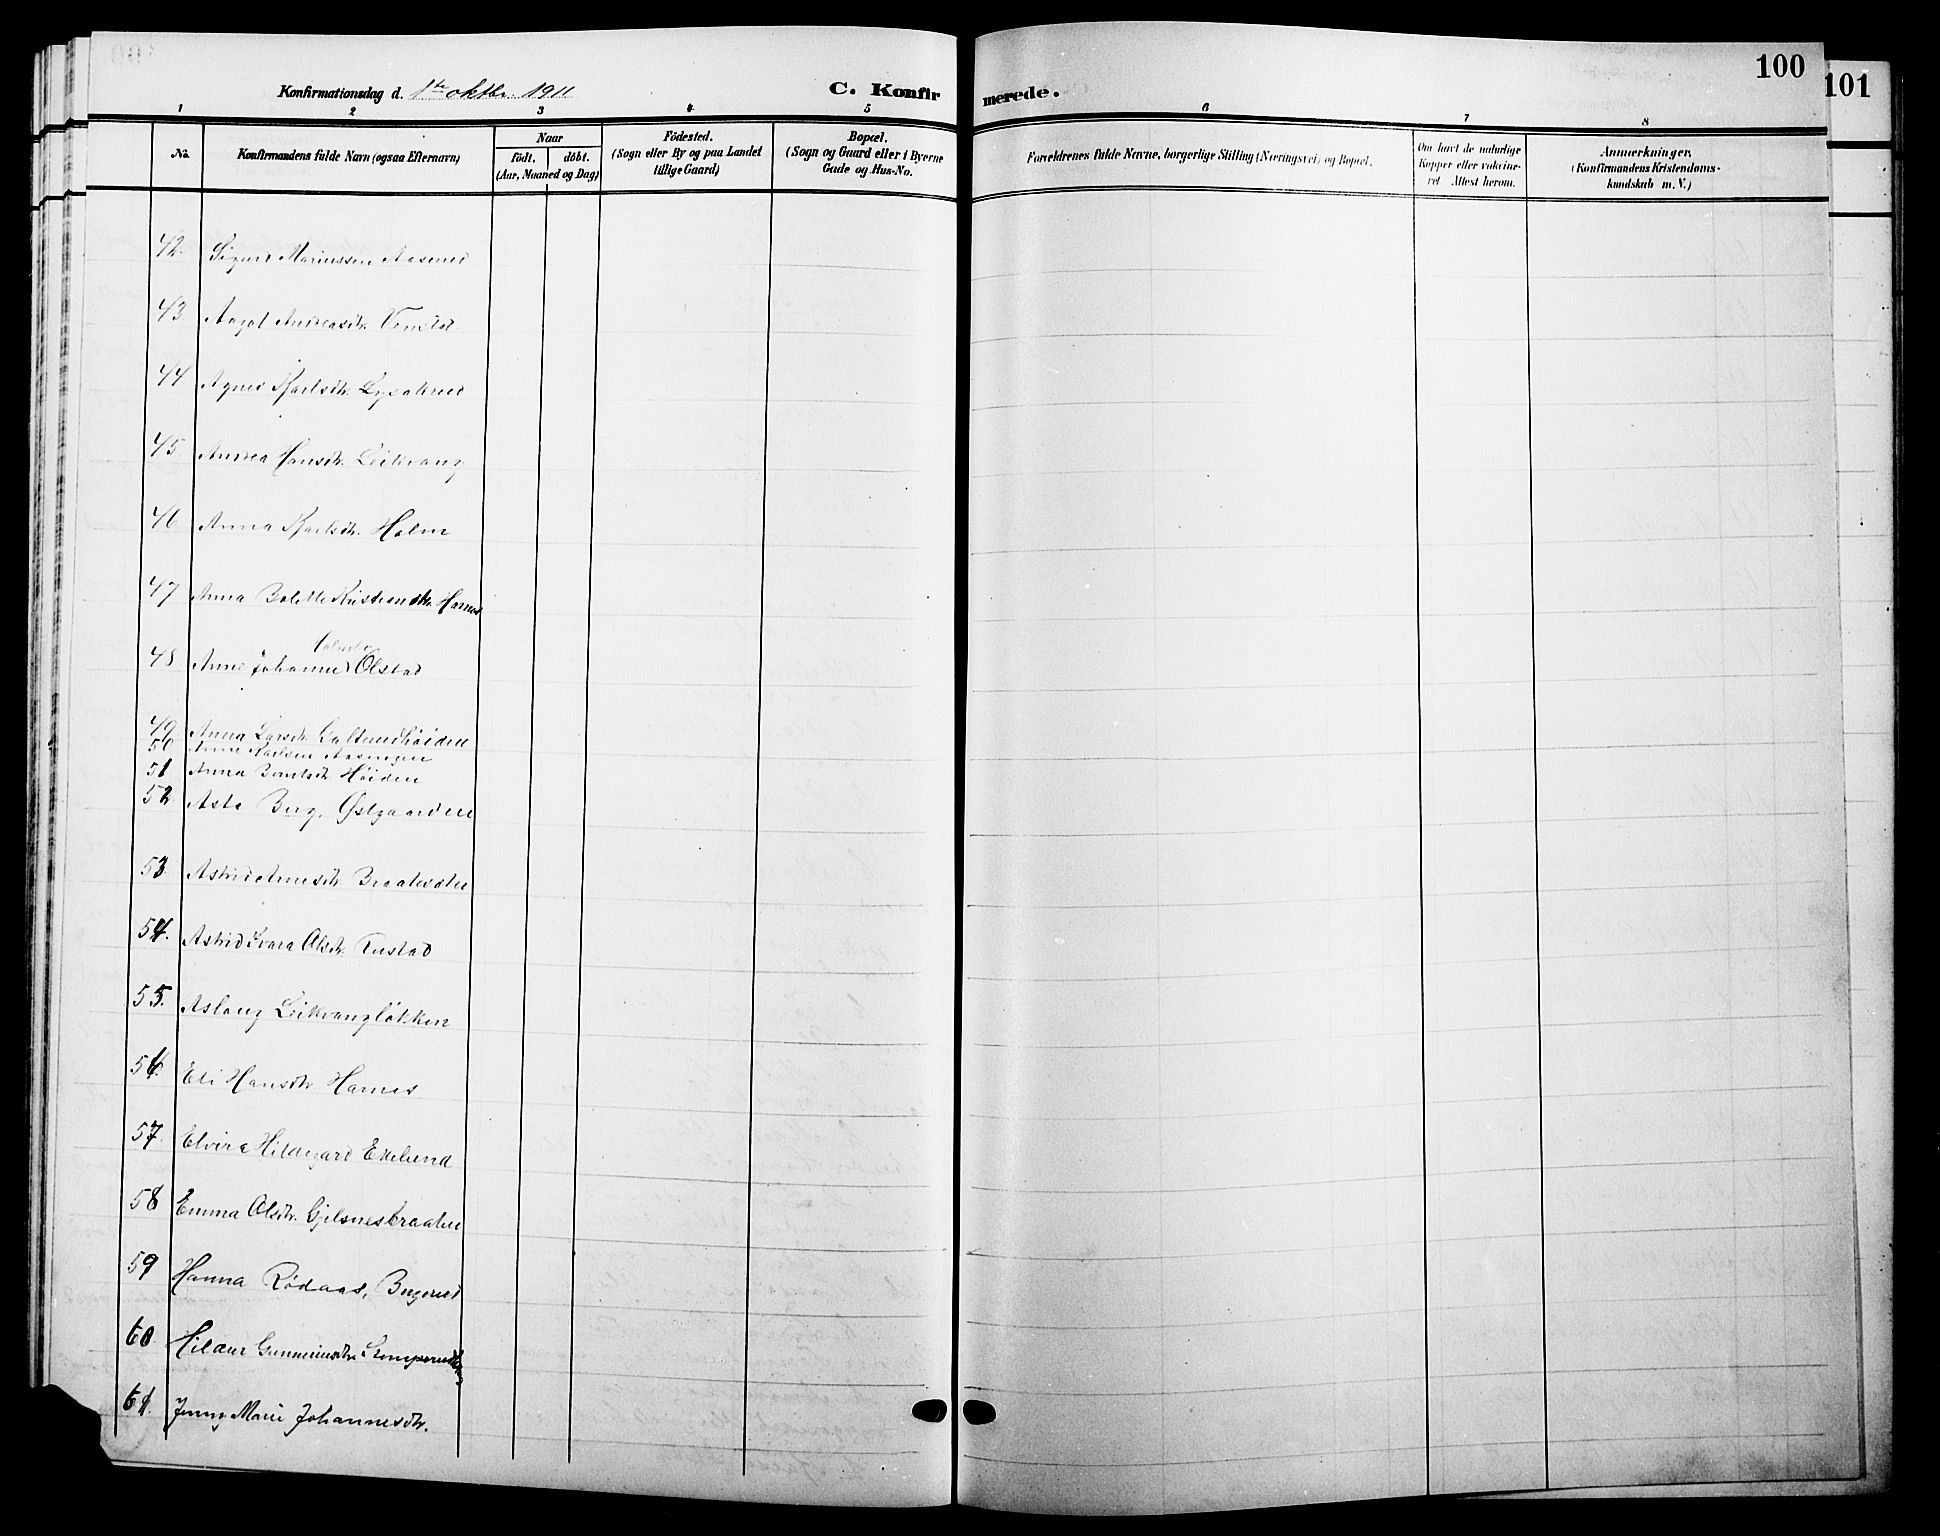 Konfirmationsdag d. 1ste oktbr. 1911
C. Konfirmerede.
100
101
1 2 3 4 5 6 7 8
No.
Konfirmandens fulde Navn (ogsaa Efternavn)
Naar
født. døbt.
(Aar, Maaned og Dag)
Fødested.
(Sogn eller By og paa Landet tillige Gaard)
Bopæl.
(Sogn og Gaard eller i Byerne Gade og Hus-No.
Forældrenes fulde Navne, borgerlige Stilling (Næringsvei) og Bopæl.
Om havt de naturlige Kopper eller vaksineret Attest herom.
Anmærkninger.
(Konfirmandens Kristendomskundskab m. V.)
42. Sigurd Mariussen Aaserud
43 Aagot Andreasdtr.
44 Agnes Karlsdtr. Lysakrud
45 Andrea Hansdtr. Leikvang
46 Anna Karlsdtr. Holm
47 Anna Bolette Kristiansdtr. Harnes
48 Anne Johanne Olstad
49 Anna Larsdtr. Galterudhøiden
50 Anne Karlsen
51 Anna Berntsdtr. Høiden
52 Asta Berg, Østgaarden
53 Astrid Arnesdtr. Braatesdtr
54. Astrid Kvara Olsdtr. Rustad
55. Aslaug Leikvangløkken
56. Eli Hansdtr. Harnes
57. Elvira Hildegard Ekelund
58 Emma Olsdtr. Gjelsnesbraaten
59 Hanna Rødaas, Bugerud
60 Hildur Gunneriusdtr.
61. Jenny Marie Johannesdtr.